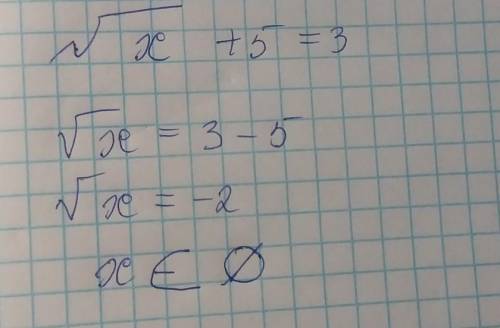 √x +5 = 3
√x = 3 - 5
√x = -2
x ∈ ∅